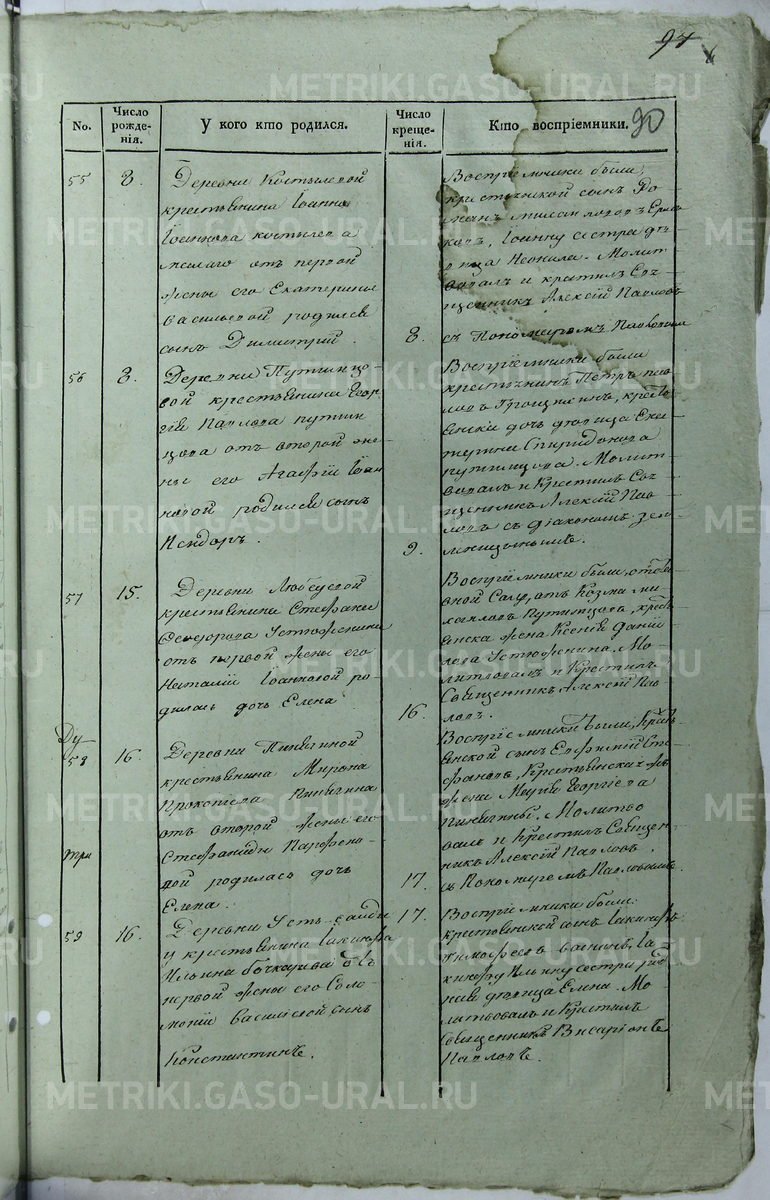 97
90
No.
Число рожденія.
У кого кто родился.
Число крещенія.
Кто воспріемники.
55
8.
Деревни Костылевой
крестьянина Іоанна
Іоаннова Костылева
малаго отъ первой
жены его Екатерины
Васильевой родился
сынъ Димитрій.
8.
Воспріемники были,
крестьянской сынъ Ро-
манъ
Іоанну сестра дѣ-
вица Неонила. Молит-
вовалъ и крестилъ Свя-
щенникъ Алексій Павловъ
съ Пономаремъ Павловымъ
56
8.
Деревни Путимцо-
вой крестьянина Геор-
гія Павлова Путим-
цова отъ второй же-
ны его Агафіи Іоан-
новой родился сынъ
Исидоръ.
9.
Воспріемники были
крестьянинъ Петръ Пав-
ловъ кресть-
янская дочь дѣвица Ека-
терина Спиридонова
Путимцова. Молит-
вовалъ и Крестилъ Свя-
щенникъ Алексій Пав-
ловъ съ діакономъ Зем-
ляницынымъ.
57
15.
Деревни
крестьянина Стефана
Ѳеодорова Устюжанина
отъ первой жены его
Наталіи Іоанновой ро-
дилась дочь Елена
16.
Воспріемники были, отста-
вной Козма Ми-
хайловъ Путимцовъ, кресть-
янска жена Ксенія Даніи-
лова Устюжанина. Мо-
литвовалъ и Крестилъ
Священникъ Алексій Пав-
ловъ.
58
16
Деревни Пинягиной
крестьянина Мирона
Прокопьева Пинягина
отъ второй жены его
Стефаниды Парфено-
вой родилась дочь
Елена.
17.
Воспріемники были, Кресть-
янской сынъ Евфимій Сте-
фановъ, Крестьянская
жена Марія Георгіева
Пинягины. Молитво-
валъ и Крестилъ Священ-
никъ Алексій Павловъ
съ Пономаремъ Павловымъ.
три
59
16.
Деревни Усть-
у крестьянина Іакинфа
Ильина Бочкарева отъ
первой жены его Соло-
моніи Васильевой сынъ
Константинъ.
17.
Воспріемники были
крестьянской сынъ Іакинфъ
Тимофеевъ Іа-
кинфу Ильину сестра род-
ная дѣвица Елена. Мо-
литвовалъ и Крестилъ
Священникъ Висаріонъ
Павловъ.
METRIKI.GASO-URAL.RU